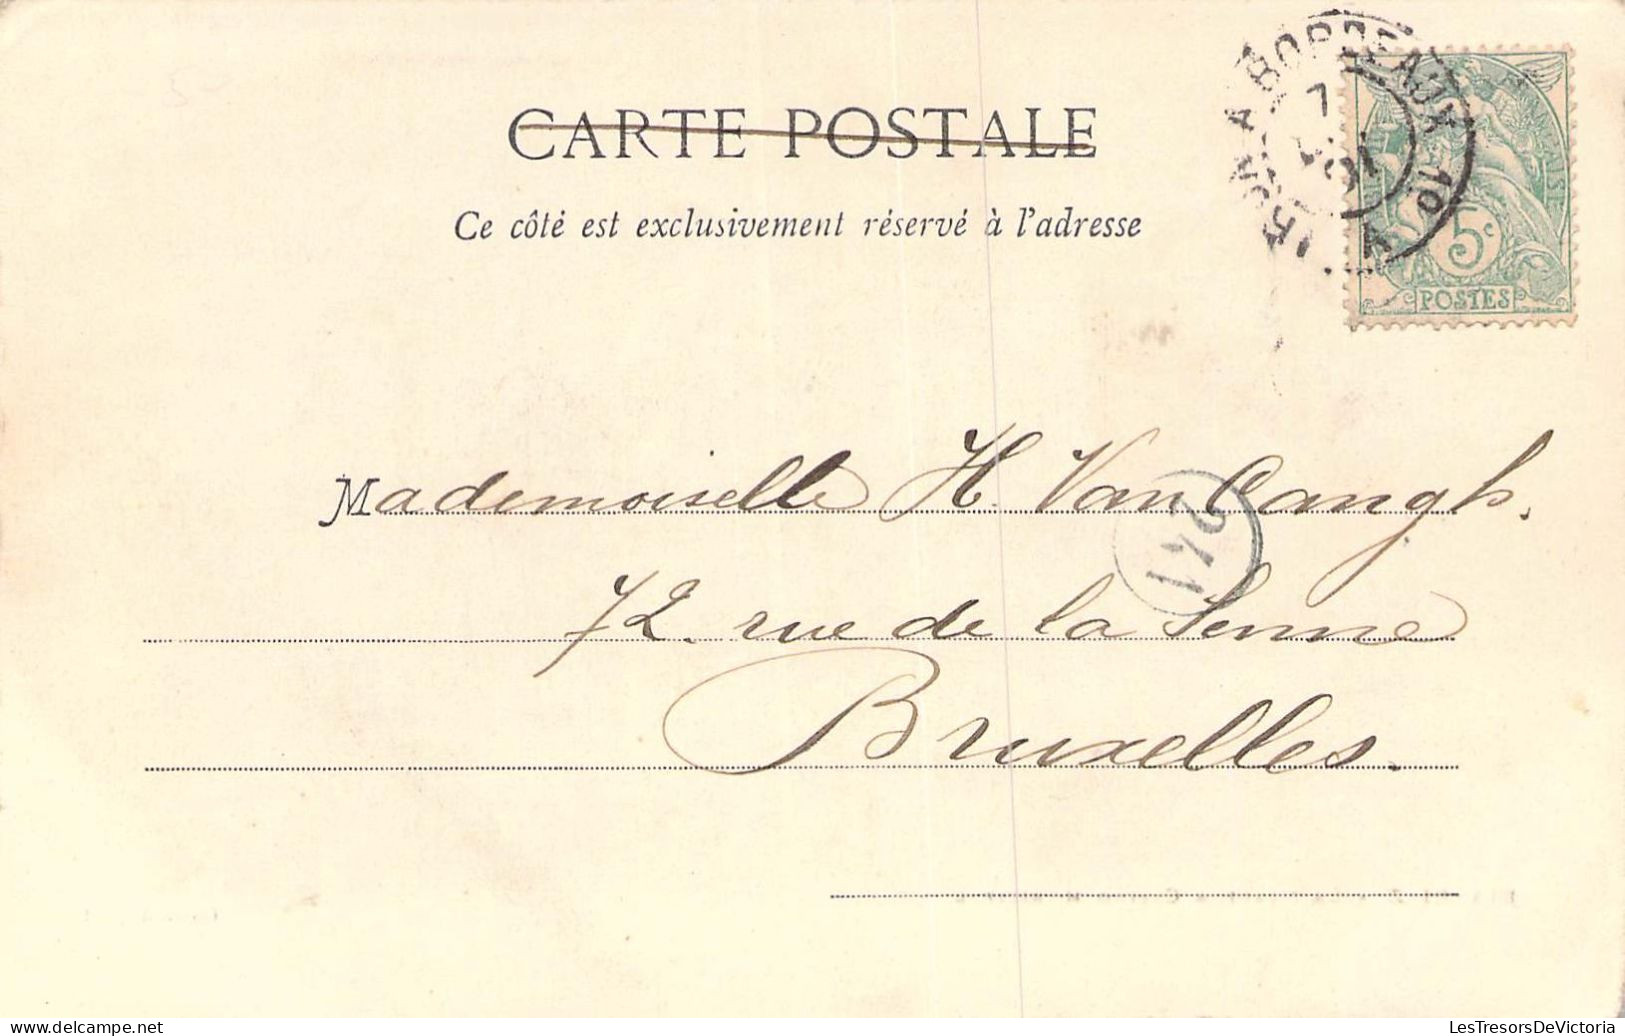 CARTE POSTALE
Ce côté est exclusivement réservé à l'adresse
IRUN A BORDEAUX 1º
7
01
5c
POSTES
Mademoiselle H. Van Cangh.
241
72. rue de la Senne
Bruxelles.
LesTresorsDeVictoria
delcampe.net